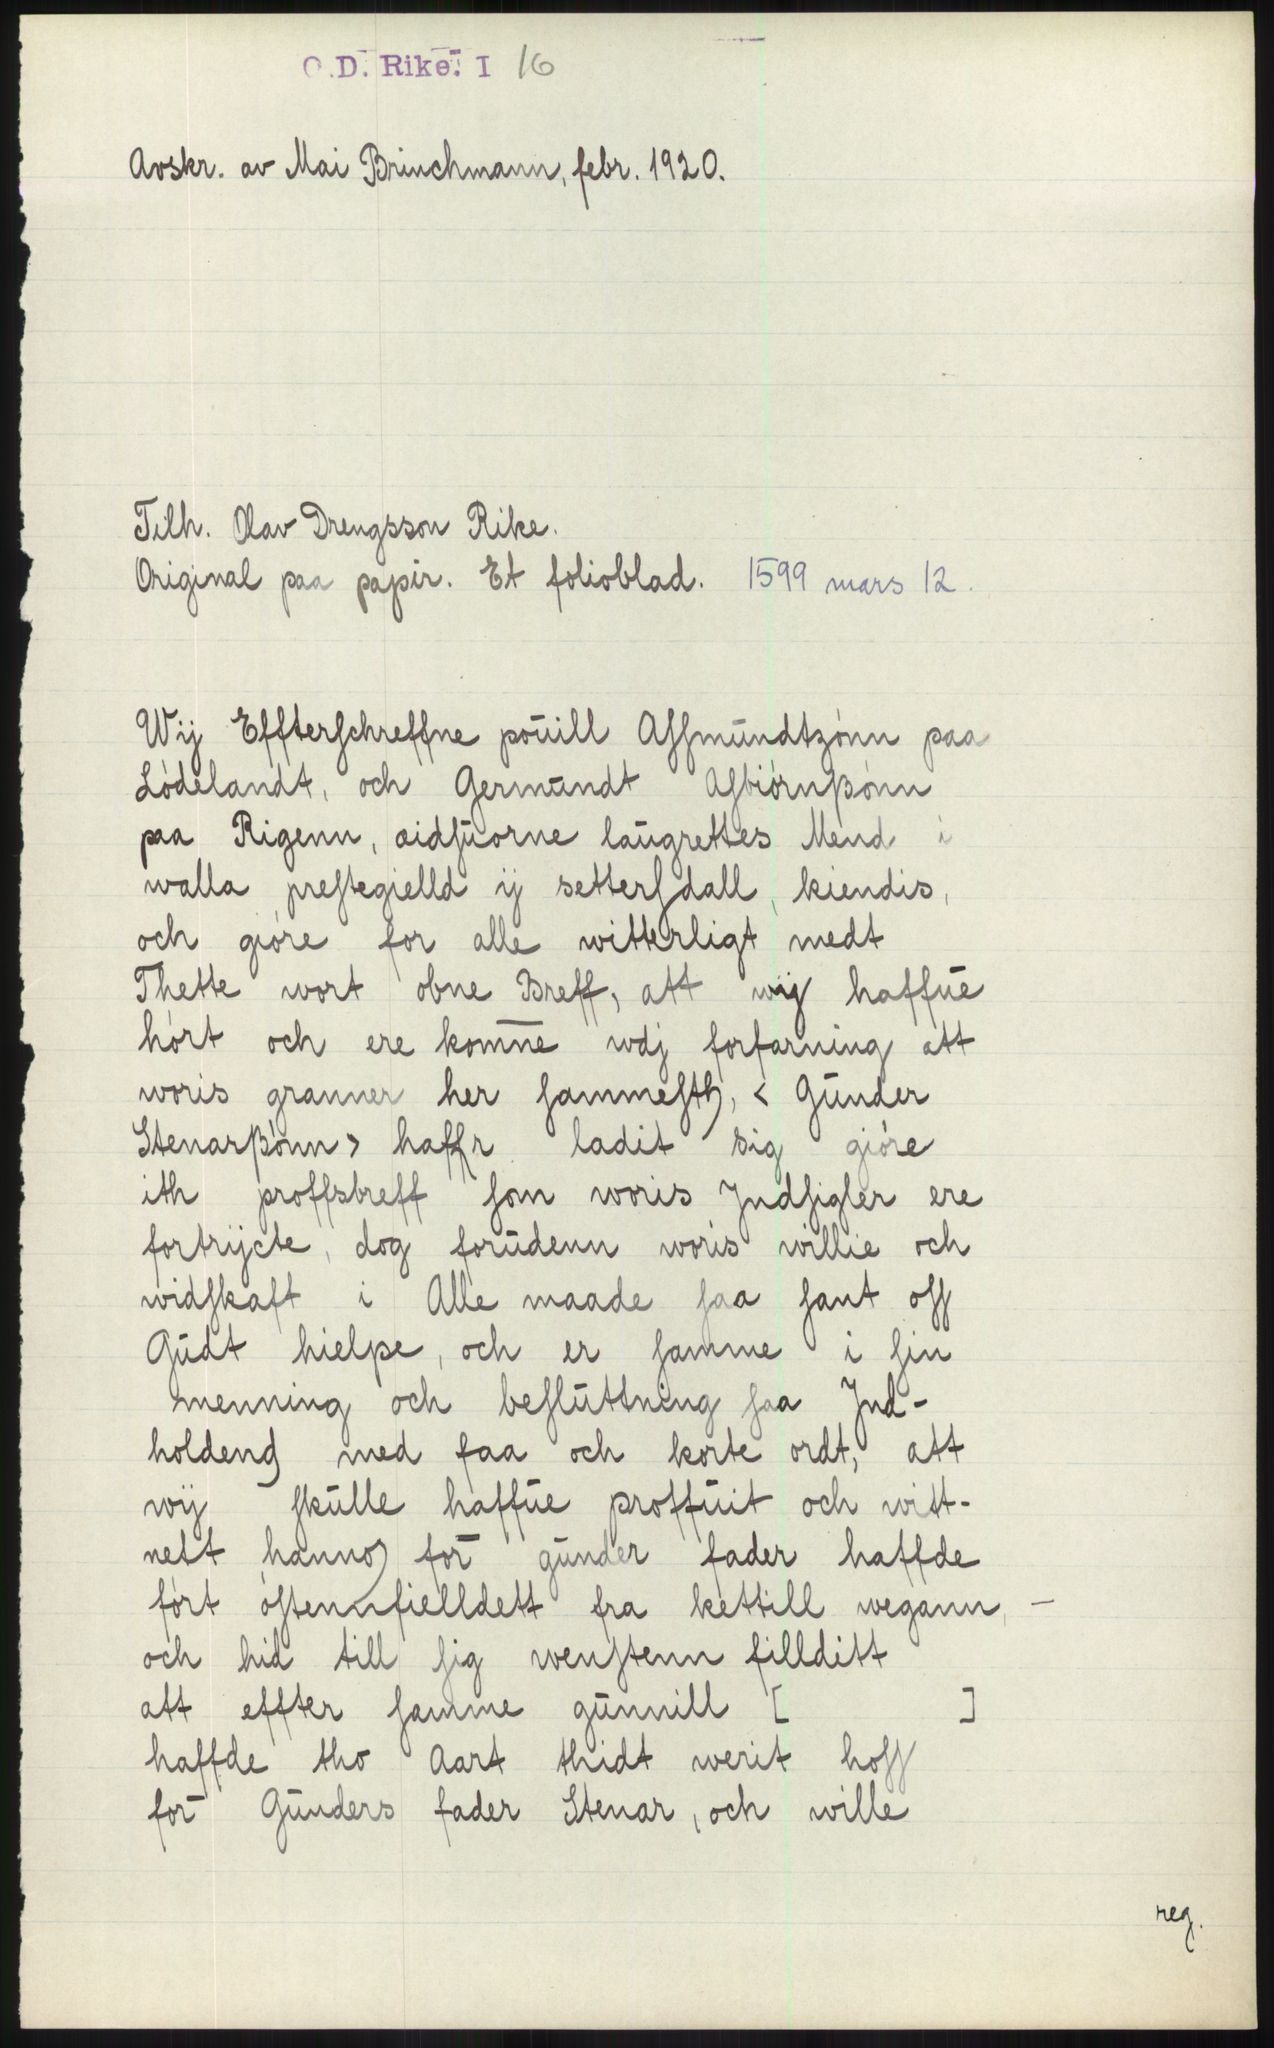 O.D. Rike. I 16
Avskr. av Mai Brinchmann, febr. 1920.
Tilh. Olav Drengsson Rike.
Original paa papir. Et folioblad. 1599 mars 12.
Wij Effterſchreffne pouill Aſſmundtzónn paa
Lódelandt, och Germundt Aſbiórnßónn
paa Rigenn, æidſuorne laugrettes Mend i
walla preſtegielld ij setterſdall, kiendis,
och gióre for alle witterligt medt
Thette wort obne Breff, att wij haffue
hórt och ere kom̅ne wdj forfarning att
woris granner her ſammeſth, < Gunder
Stenarßónn > haffr ladit sig gióre
ith proffsbreff ſom woris Jndſigler ere
fortrijcte, dog forudenn woris willie och
widſkaft i Alle maade ſaa ſant oſſ
Gudt hielpe, och er ſamme i ſin
menning och beſluttning ſaa Jnd-
holdend med faa och korte ordt, att
wij ſkulle haffue proffuit och witt-
nett hanno for gunder fader haffde
fórt óſtennfielldett fra kettill wegann, -
och hid till ſig wenſtenn fillditt
att effter ſamme gunnill [ ]
haffde tho Aart thidt werit hoſſ
for Gunders fader Stenar, och wille
reg.